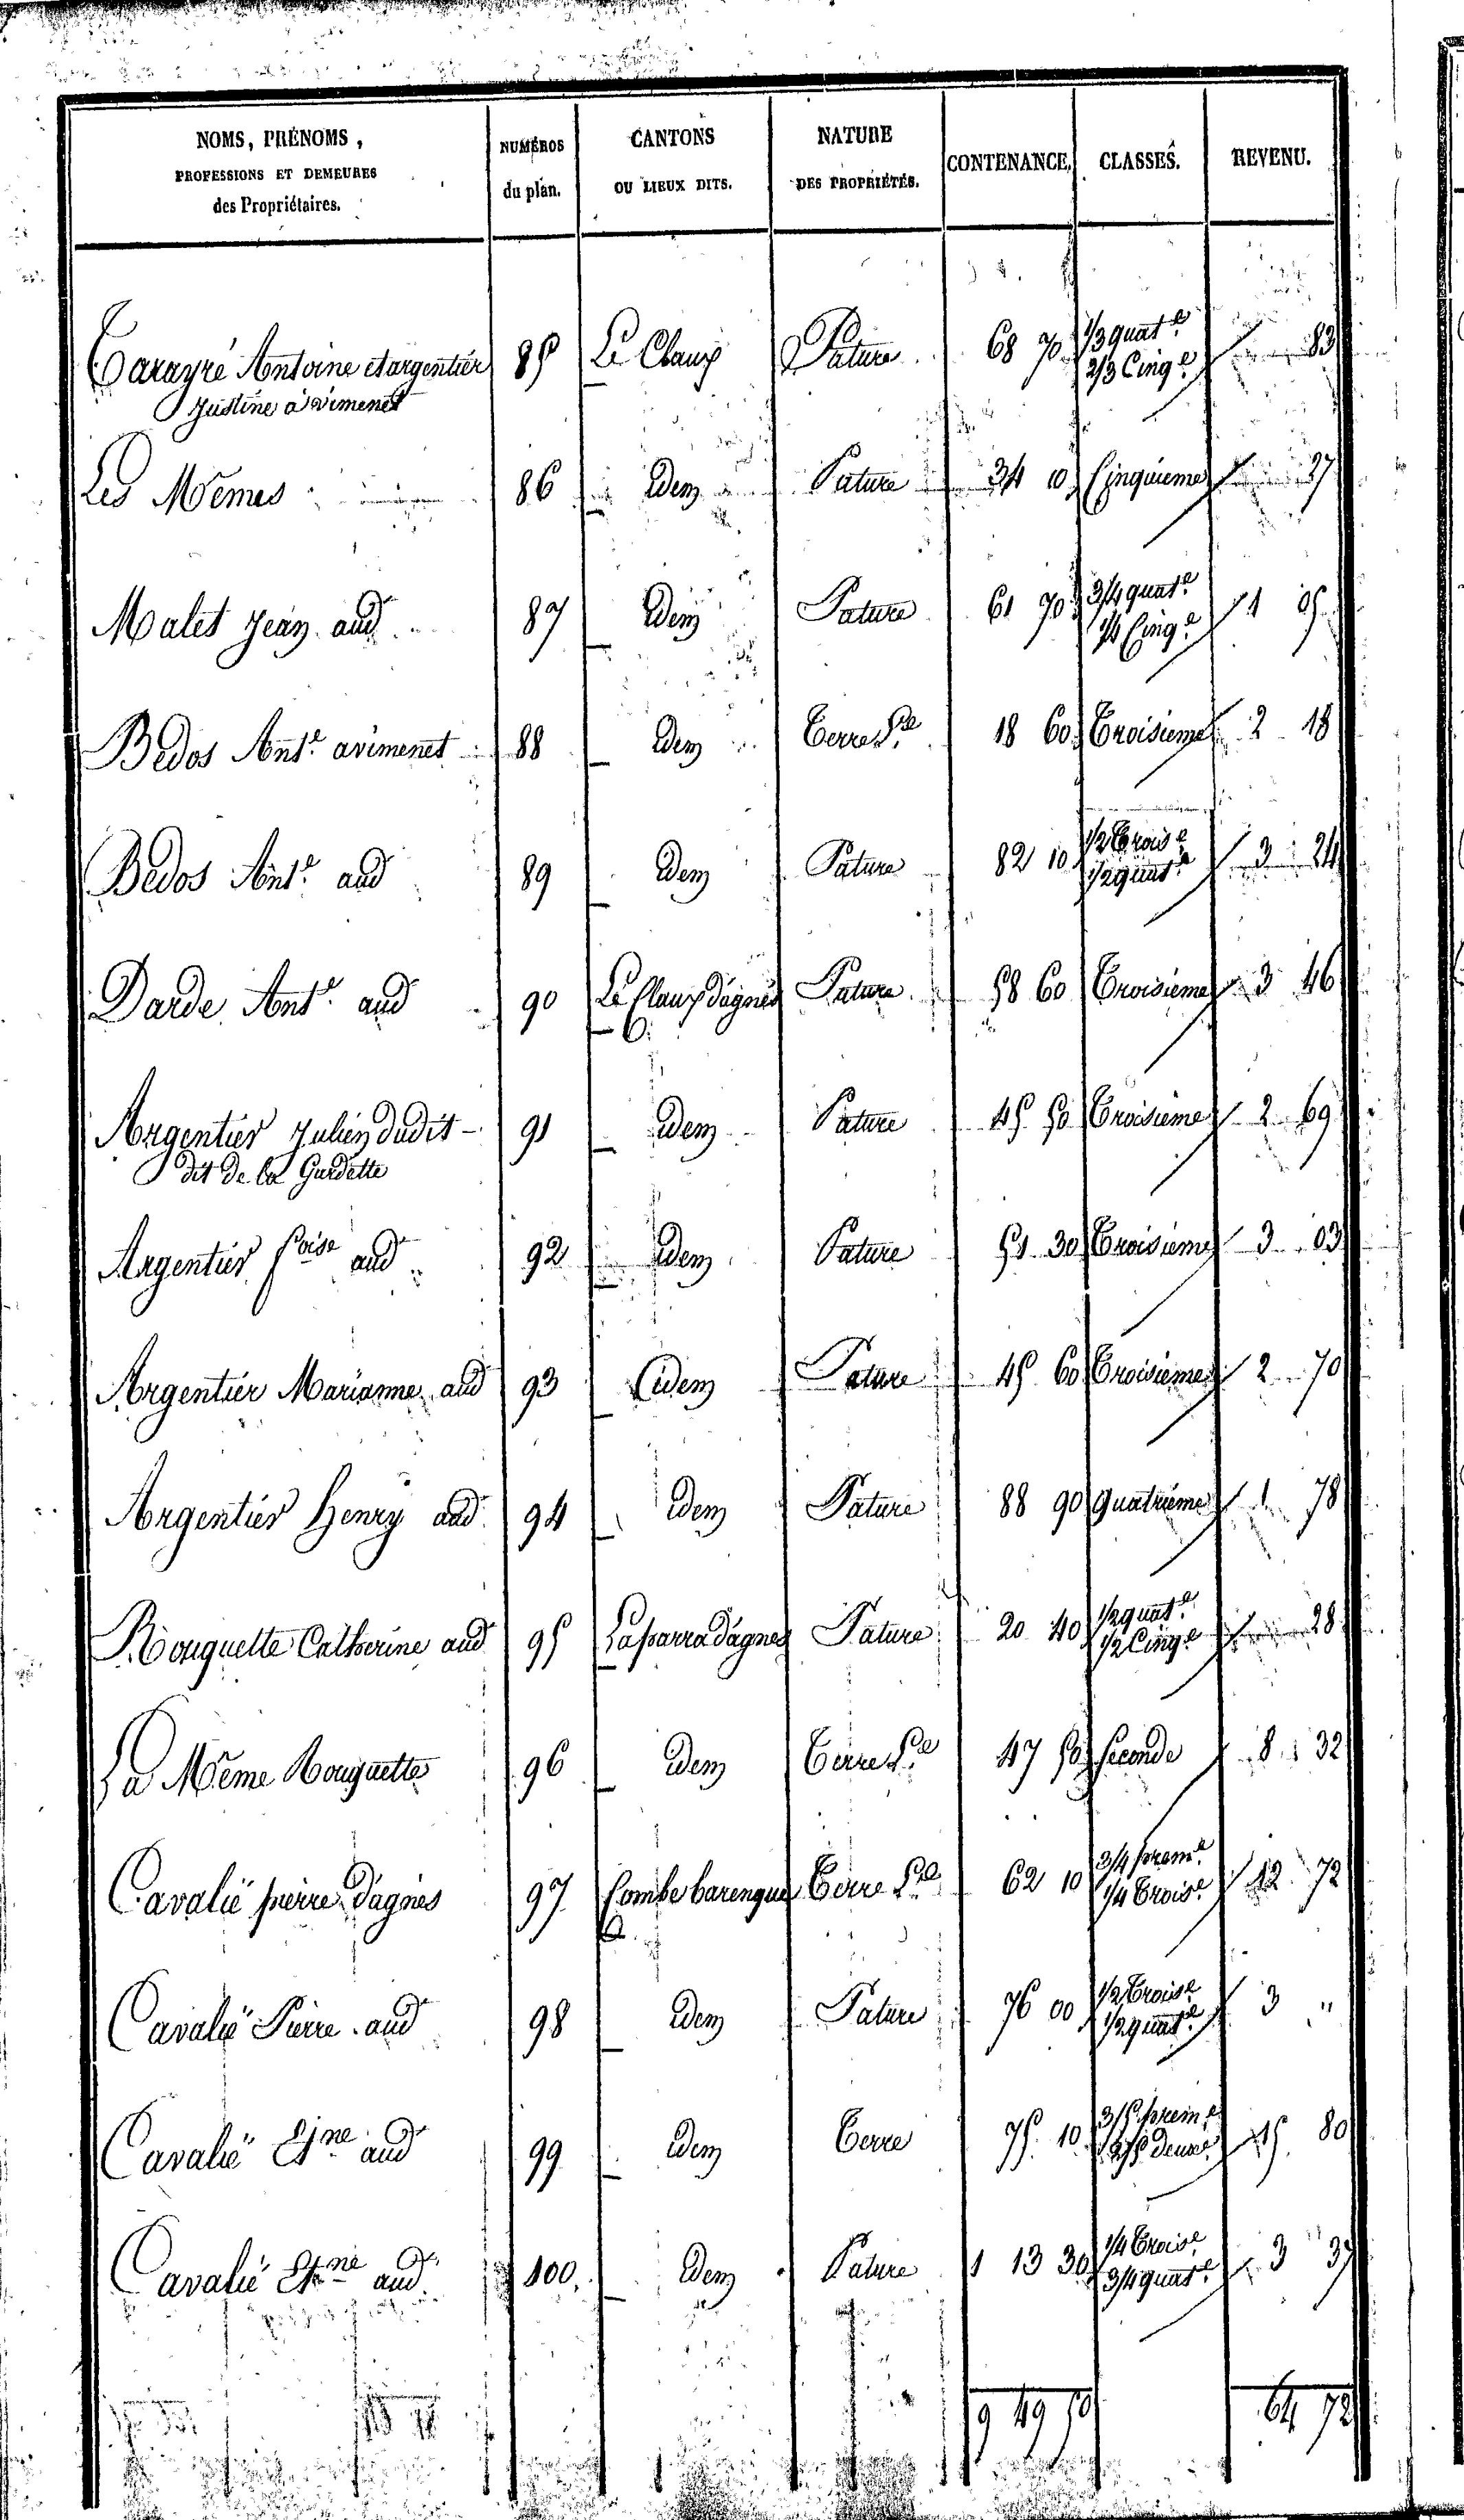 NOMS, PRÉNOMS, NUMÉROS CANTONS NATURE CONTENANCE. CLASSES. REVENU.
PROFESSIONS ET DEMEURES du plan. OU LIEUX DITS. DES PROPRIÉTÉS.
des Propriétaires.
Tarayré Antoine et argentier 85 Le Claux Pature 68 70 1/3 quat.e 2/3 Cinq.e 83
Justine a vimenet
Les Mêmes 86 Idem Pature 34 10 Cinquieme 27
Malet Jean aud 87 Idem Pature 61 70 3/4 quat.e 1/4 Cinq.e 1 05
Bedos Ant.e avimenet 88 Idem Terre L.le 18 60 Troisieme 2 18
Bedos Ant.e aud 89 Idem Pature 82 10 1/2 Trois.e 1/2 quat.e 3 24
Darde Ant.e aud 90 Le Claux d'agnès Pature 58 60 Troisieme 3 46
Argentier Julien dudit 91 Idem Pature 45 50 Troisieme 2 69
dit De la Gardette
Argentier foise aud 92 Idem Pature 51 30 Troisieme 3 03
Argentier Marianne aud 93 Idem Pature 45 60 Troisieme 2 70
Argentier Henry aud 94 Idem Pature 88 90 quatrieme 1 78
Rouquette Catherine aud 95 Laparra d'agnes Pature 20 40 1/2 quat.e 1/2 Cinq.e 28
La Même Rouquette 96 Idem Terre L.le 47 50 seconde 8 32
Cavalié pierre d'agnès 97 Combe barenque Terre L.le 62 10 3/4 prem.e 1/4 Trois.e 12 72
Cavalié Pierre aud 98 Idem Pature 76 00 1/2 Trois.e 1/2 quat.e 3 "
Cavalié Et.ne aud 99 Idem Terre 75 10 3/5 prem.e 2/5 deux.e 15 80
Cavalié Et.ne aud 100 Idem Pature 1 13 30 1/4 Trois.e 3/4 quat.e 3 37
9 49 50 64 72